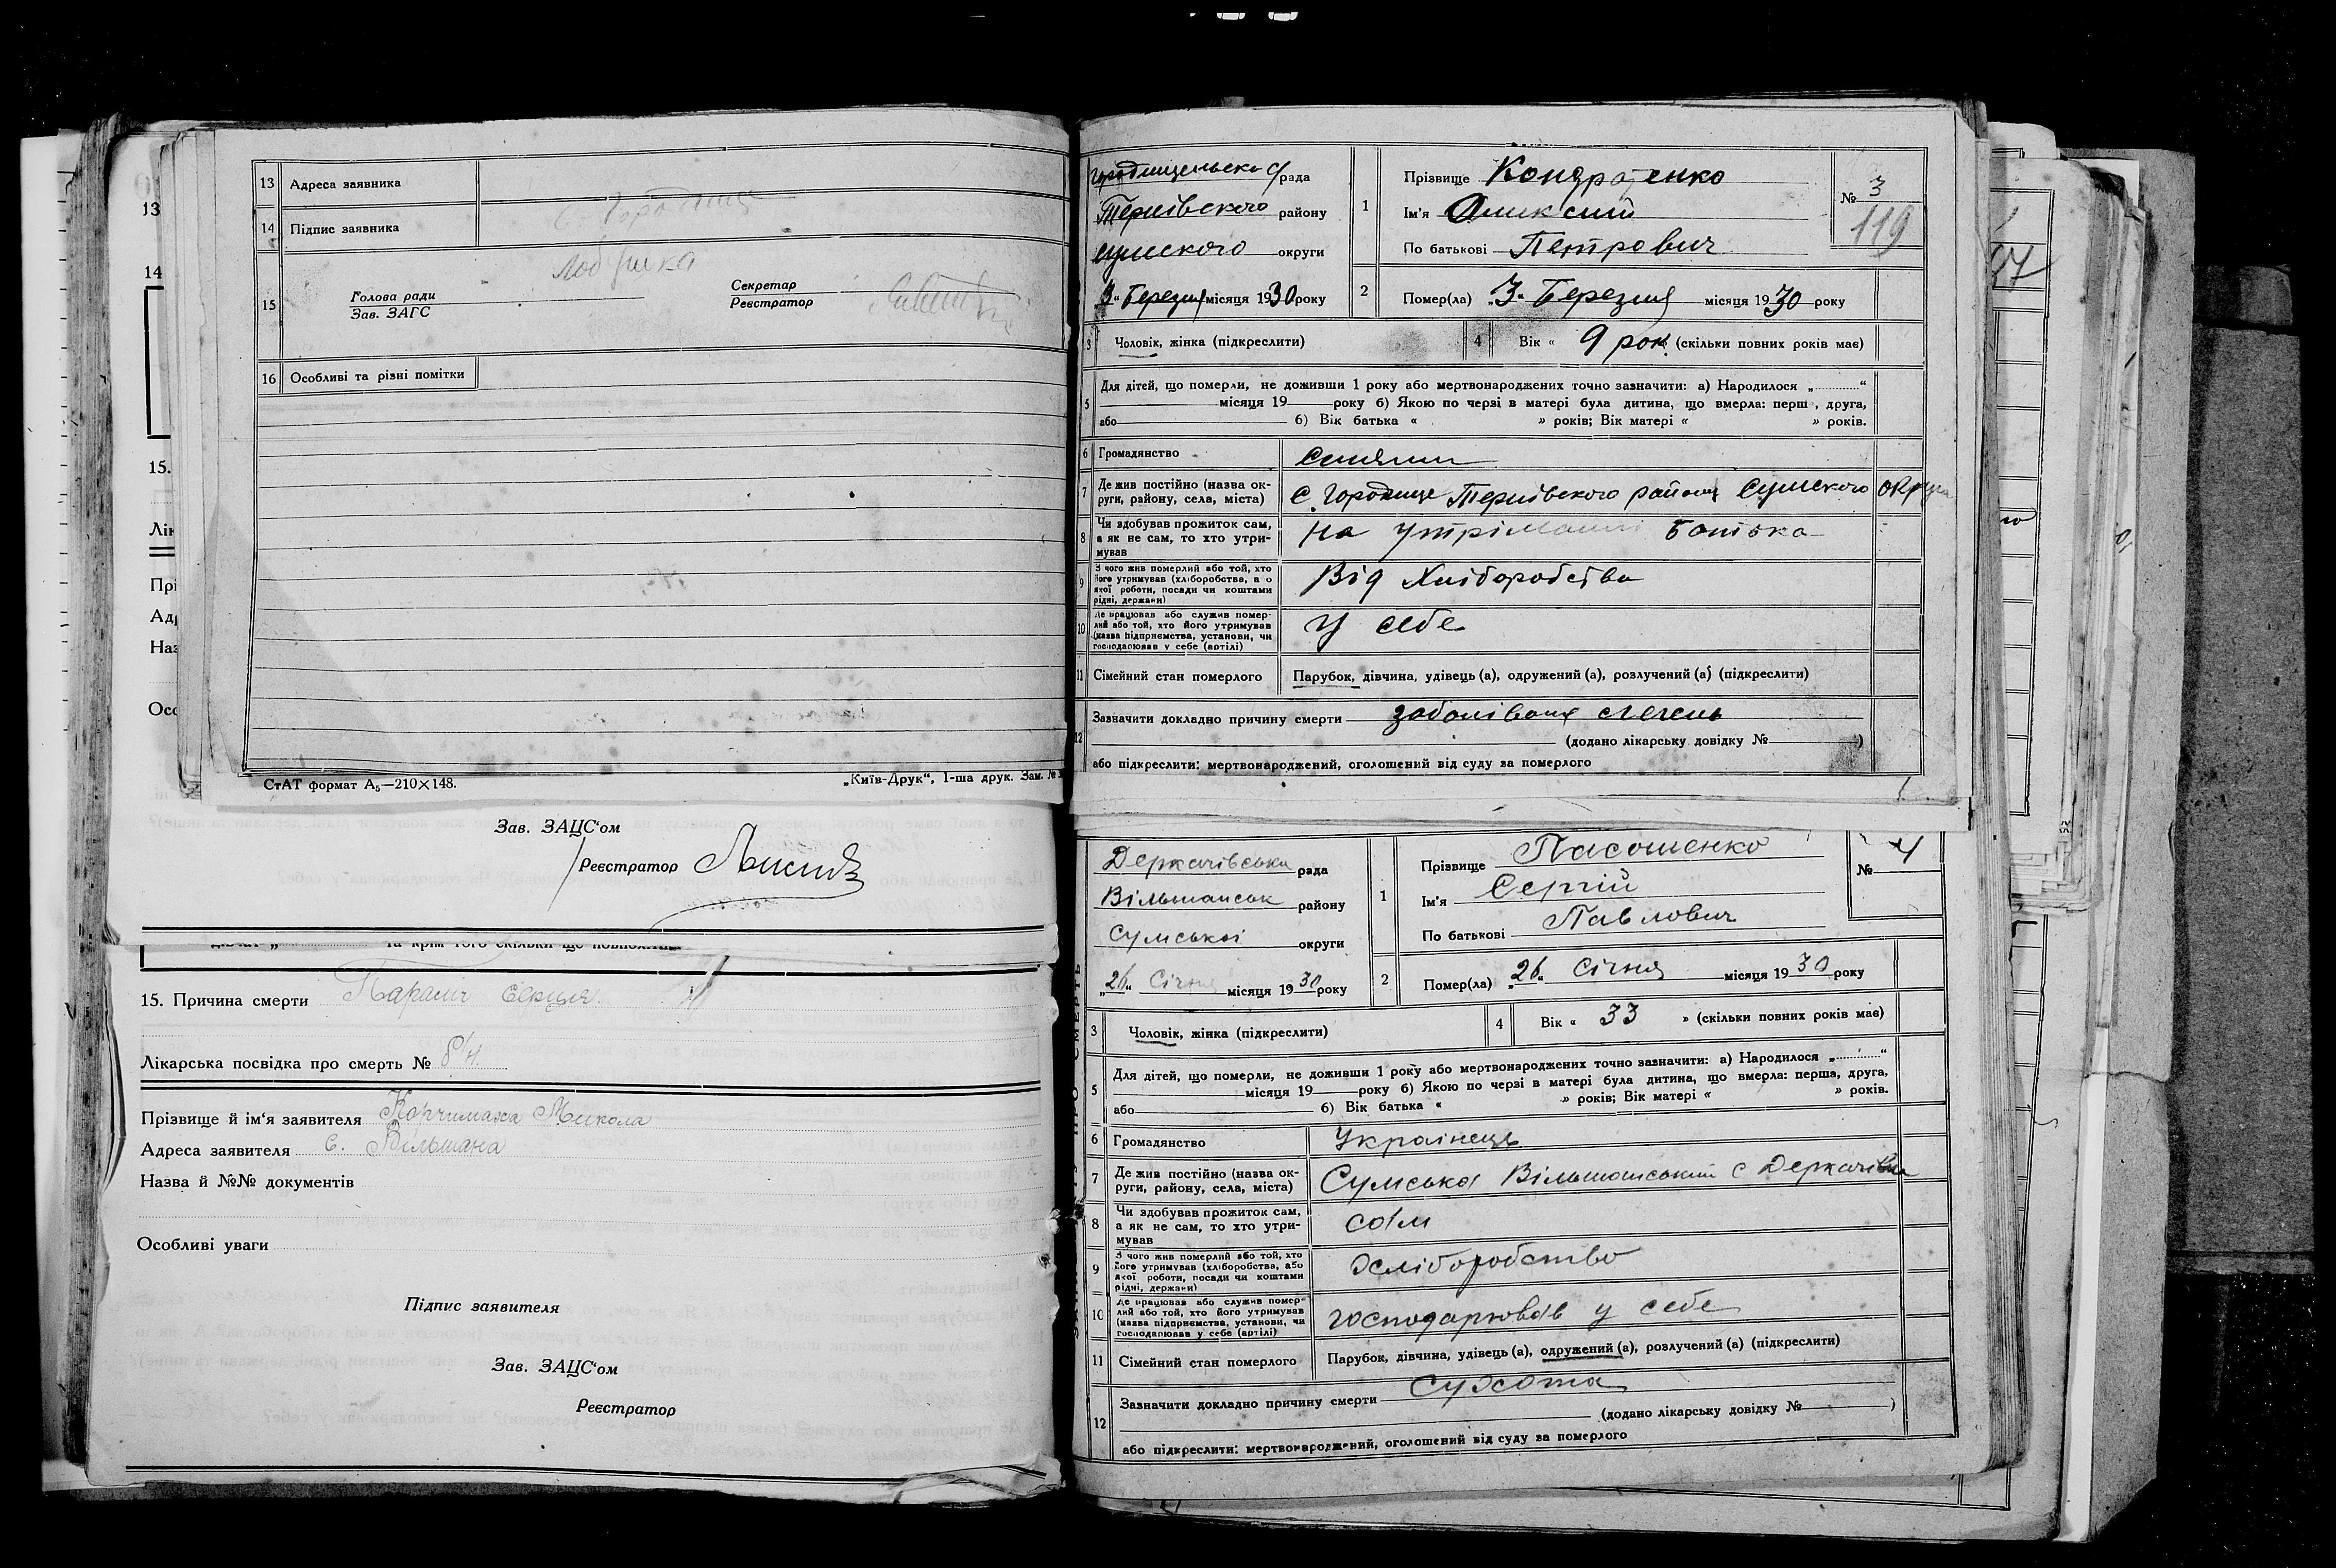 13 Адреса заявника
14 Підпис заявника
с Городище
15
Голова ради
Зав. ЗАГС
Секретар
Реєстратор
16 Особливі та різні помітки
СтАТ формат А₅—210×148.
„Київ-Друк“, 1-ша друк. Зам. №
13
14
15.
Лік
Прі
Адр
Наз
Осо
Зав. ЗАЦС‘ом
Реєстратор
15. Причина смерти Параліч серця
Лікарська посвідка про смерть № б/н.
Прізвище й ім‘я заявителя Микола
Адреса заявителя с. Вільшана
Назва й №№ документів
Особливі уваги
Підпис заявителя
Зав. ЗАЦС‘ом
Реєстратор
рада
Тернівского району
сумского округи
3 Березня місяця 1930 року
1
Прізвище Кондратенко
Ім‘я Оликсий
По батькові Петрович
№ 3
119
2 Помер(ла) „3“ Березня місяця 1930 року
3 Чоловік, жінка (підкреслити)
4 Вік « 9 рок. (скільки повних років має)
5 Для дітей, що померли, не доживши 1 року або мертвонароджених точно зазначити: а) Народилося „ “
місяця 19 року б) Якою по черзі в матері була дитина, що вмерла: перш , друга,
або б) Вік батька « » років; Вік матері « » років.
6 Громадянство
7 Де жив постійно (назва округи, району, села, міста) с. Городище Тернівского району Сумского округа
8 Чи здобував прожиток сам, а як не сам, то хто утримував На утріманні батька
9 З чого жив померлий або той, хто його утримував (хліборобства, а о якої роботи, посади чи коштами рідні, держави) Від Хліборобства
10 Де працював або служив померлий або той, хто його утримував (назва підприємства, установи, чи господарював у себе (артілі) У себе
11 Сімейний стан померлого Парубок, дівчина, удівець (а), одружений (а), розлучений (а) (підкреслити)
12 Зазначити докладно причину смерти
(додано лікарську довідку № )
або підкреслити: мертвонароджений, оголошений від суду за померлого
Деркачівська рада
Вільшанськ району
Сумської округи
„26“ Січня місяця 1930 року
1
Прізвище Пасошенко
Ім‘я Сергій
По батькові Павлович
№ 4
2 Помер(ла) „26“ Січня місяця 1930 року
3 Чоловік, жінка (підкреслити)
4 Вік « 33 » (скільки повних років має)
5 Для дітей, що померли, не доживши 1 року або мертвонароджених точно зазначити: а) Народилося „ “
місяця 19 року б) Якою по черзі в матері була дитина, що вмерла: перша, друга,
або б) Вік батька « » років; Вік матері « » років.
6 Громадянство Українець
7 Де жив постійно (назва округи, району, села, міста) Сумська Вільшанський с Деркачівка
8 Чи здобував прожиток сам, а як не сам, то хто утримував сам
9 З чого жив померлий або той, хто його утримував (хліборобства, або якої роботи, посади чи коштами рідні, держави) Хліборобство
10 Де працював або служив померлий або той, хто його утримував (назва підприємства, установи, чи господарював у себе (артілі) господарював у себе
11 Сімейний стан померлого Парубок, дівчина, удівець (а), одружений (а), розлучений (а) (підкреслити)
12 Зазначити докладно причину смерти Сухота
(додано лікарську довідку № )
або підкреслити: мертвонароджений, оголошений від суду за померлого